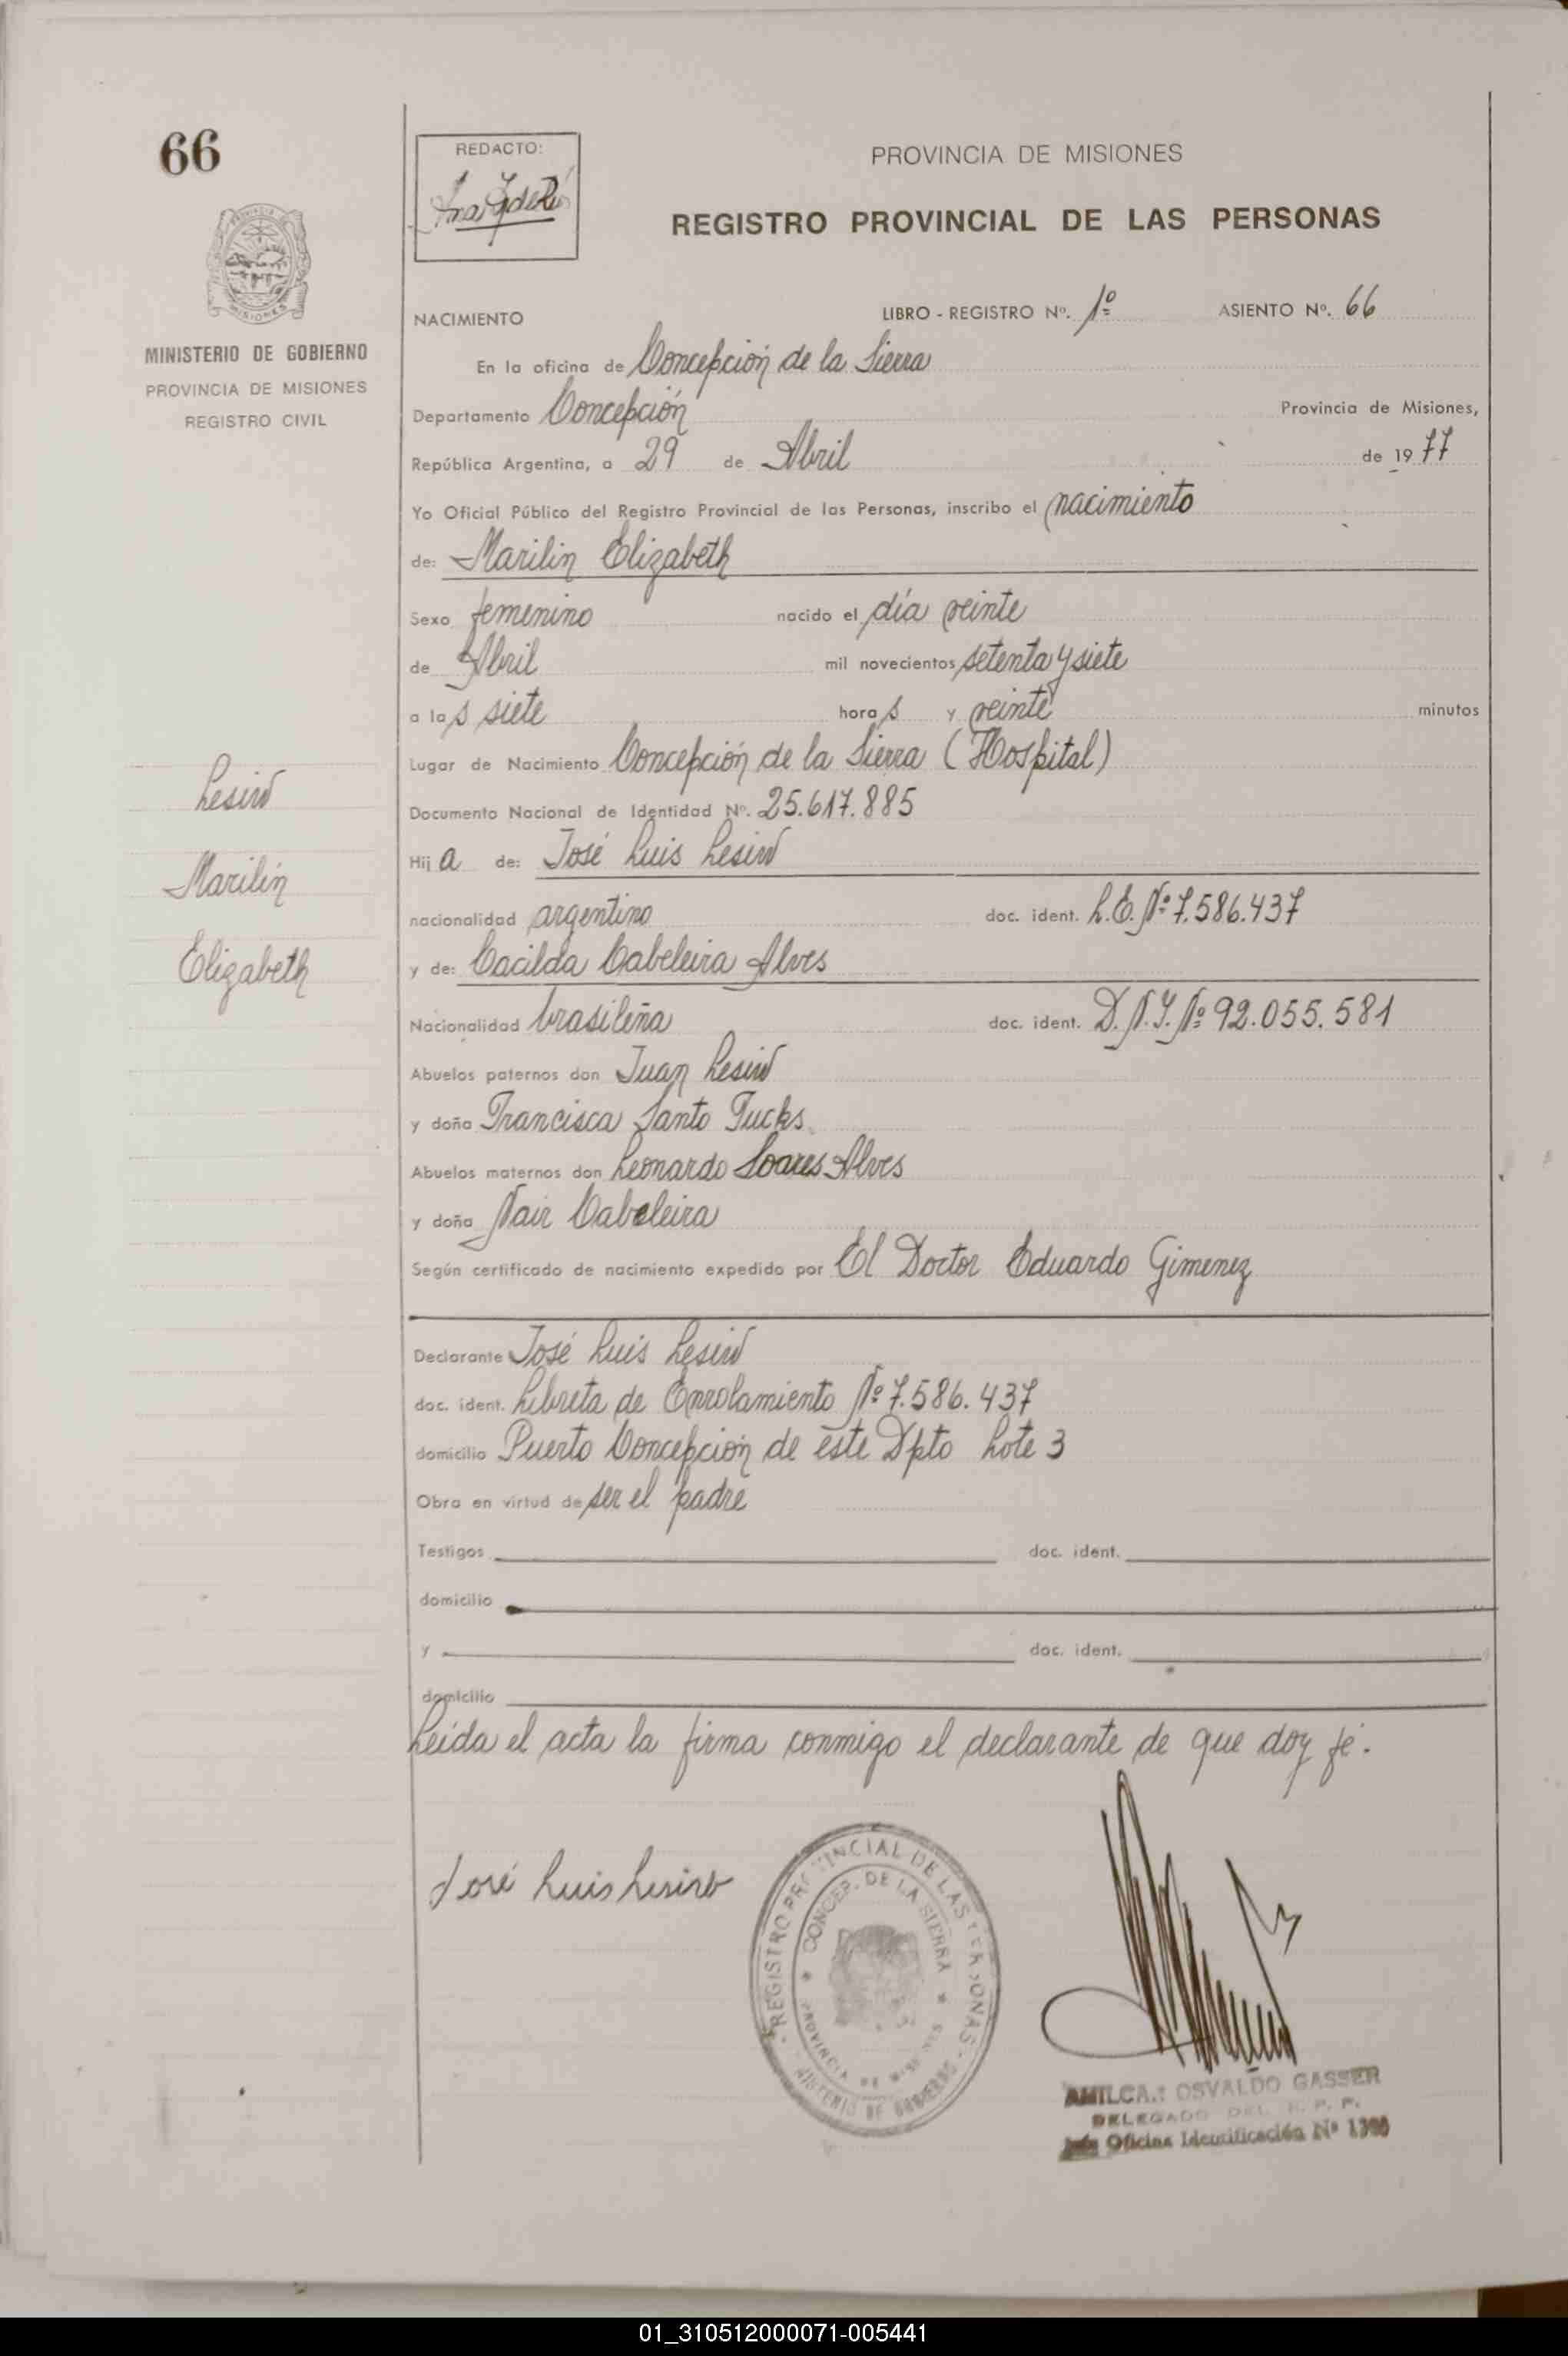 66
REDACTO:
PROVINCIA DE MISIONES
REGISTRO PROVINCIAL DE LAS PERSONAS
MISIONES
MINISTERIO DE GOBIERNO
PROVINCIA DE MISIONES
REGISTRO CIVIL
NACIMIENTO LIBRO - REGISTRO Nº. 1º ASIENTO Nº. 66
En la oficina de Concepción de la Sierra
Departamento Concepción Provincia de Misiones,
República Argentina, a 29 de Abril de 1977
Yo Oficial Público del Registro Provincial de las Personas, inscribo el nacimiento
de: Marilin Elizabeth
Sexo femenino nacido el día veinte
de Abril mil novecientos setenta y siete
a las siete horas y veinte minutos
Lugar de Nacimiento Concepción de la Sierra (Hospital)
Lesiw
Documento Nacional de Identidad Nº. 25.617.885
Hija de: José Luis Lesiw
Marilin
nacionalidad argentino doc. ident. L.E. Nº 7.586.437
y de: Cacilda Cabeleira Alves
Elizabeth
Nacionalidad brasileña doc. ident. D.N.I. Nº 92.055.581
Abuelos paternos don Juan Lesiw
y doña Francisca Santo Fucks
Abuelos maternos don Leonardo Soares Alves
y doña Nair Cabeleira
Según certificado de nacimiento expedido por El Doctor Eduardo Gimenez
Declarante José Luis Lesiw
doc. ident. Libreta de Enrolamiento Nº 7.586.437
domicilio Puerto Concepción de este Dpto Lote 3
Obra en virtud de ser el padre
Testigos doc. ident.
domicilio
y doc. ident.
domicilio
Leída el acta la firma conmigo el declarante de que doy fé.
José Luis Lesiw
REGISTRO PROVINCIAL DE LAS PERSONAS
CONCEP. DE LA SIERRA
PROVINCIA DE MISIONES
MINISTERIO DE GOBIERNO
AMILCAR OSVALDO GASSER
DELEGADO DEL R. P. P.
Jefe Oficina Identificación Nº 1300
01_310512000071-005441